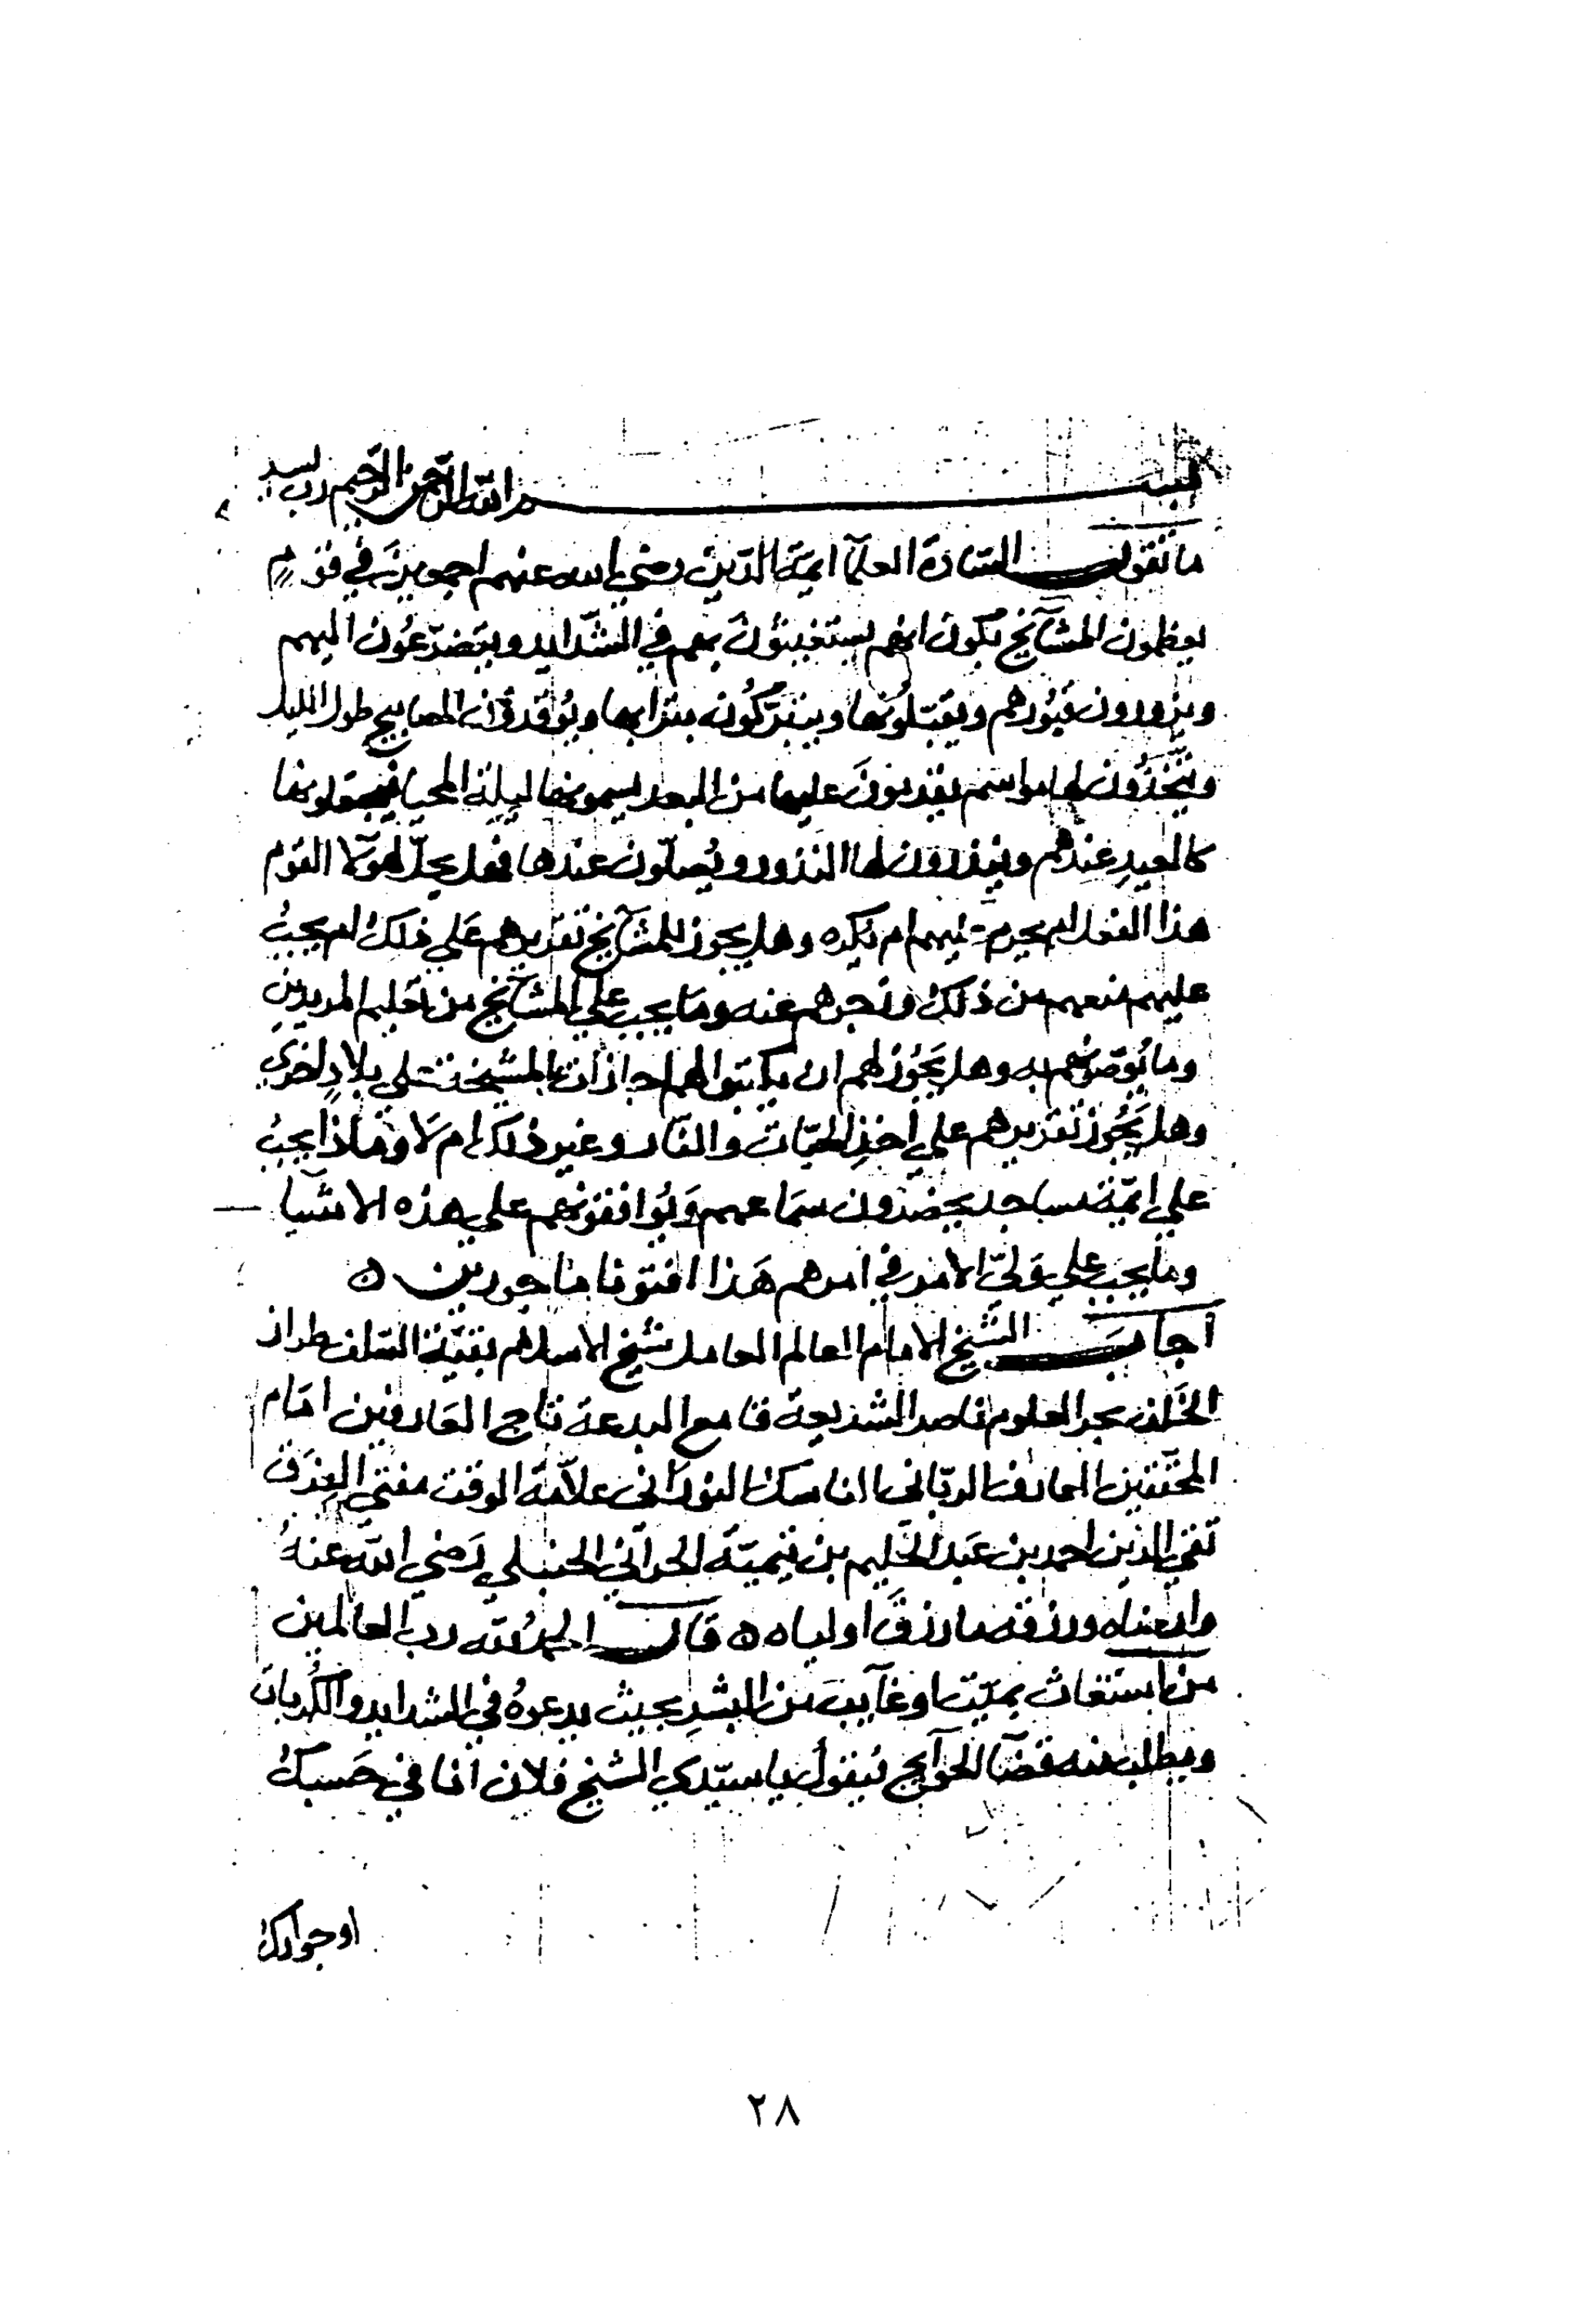 بسم الله الرحمن الرحيم رب يسر
ما تقول السادة العلمآ ايمة الدين رضي الله عنهم اجمعين في قوم
يعظمون المشآيخ بكون انهم يستغيثون بهم في الشدايد ويتضرعون اليهم
ويزورون قبورهم ويقبلونها ويتبركون بترابها ويوقدون المصابيح طول الليل
ويتخذون لها مواسم يقدمون عليها من البعد يسمونها ليلة المحيا فيجعلونها
كالعيد عندهم وينذرون لها النذور ويصلون عندها فهل يحل لهولآ القوم
هذا الفعل ام يحرم عليهم ام يكره وهل يجوز للمشآيخ تقريرهم على ذلك ام يجب
عليهم منعهم من ذلك وزجرهم عنه وما يجب على المشآيخ من تعليم المريدين
وما يوصونهم به وهل يجوز لهم ان يكتبوا لهم اجازات بالمشيخة على بلاد اخرى
وهل يجوز تقريرهم على اخذ الحيات والنار وغير ذلك ام لا وماذا يجب
على ايمة مساجد يحضرون سماعهم ويوافقونهم على هذه الاشيا
وما يجب على ولي الامر في امرهم هذا افتونا ماجورين ه
اجاب الشيخ الامام العالم العامل شيخ الاسلام بقية السلف طراز
الخلف بحر العلوم ناصر الشريعة قامع البدعة تاج العارفين امام
المحققين العارف الرباني الناسك النوراني علامة الوقت مفتي الفرق
تقي الدين احمد بن عبد الحليم بن تيمية الحراني الحنبلي رضي الله عنه
وارضاه ورزقه ما رزق اولياه ه قال الحمد لله رب العالمين
من استغاث بميت او غآيب من البشر بحيث يدعوه في الشدايد والكربات
ويطلب منه قضآ الحوآيج فيقول يا سيدي الشيخ فلان انا في حسبك
او جوارك
٢٨